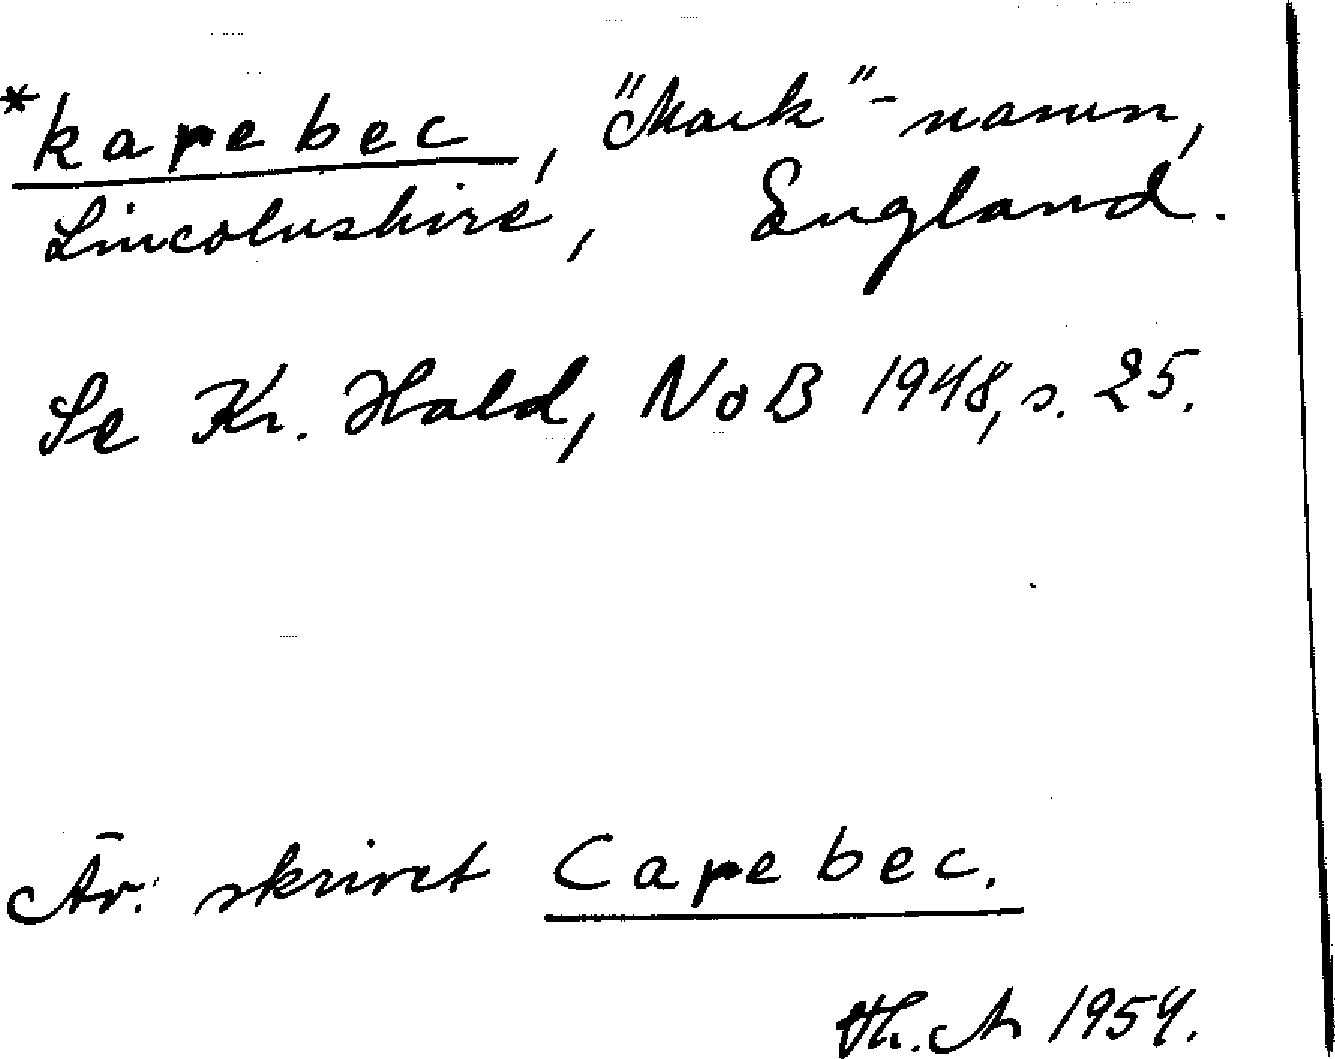 *kapebec, "Mark"-namn,
Lincolnshire, England.
Se Kr. Hald, NoB 1948, s. 25.
Äv. skrivet Capebec.
Th. A 1954.